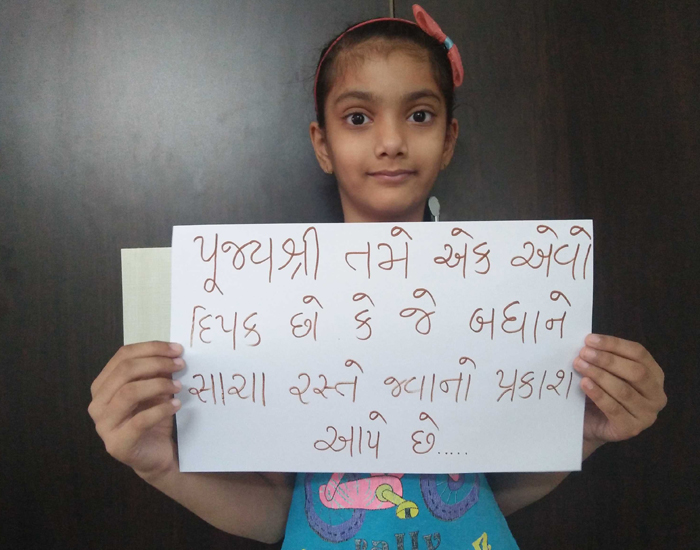 પૂજ્યશ્રી તમે એક એવો
દિપક છો કે જે બધાને
સાચા રસ્તે જવાનો પ્રકાશ
આપે છે.....